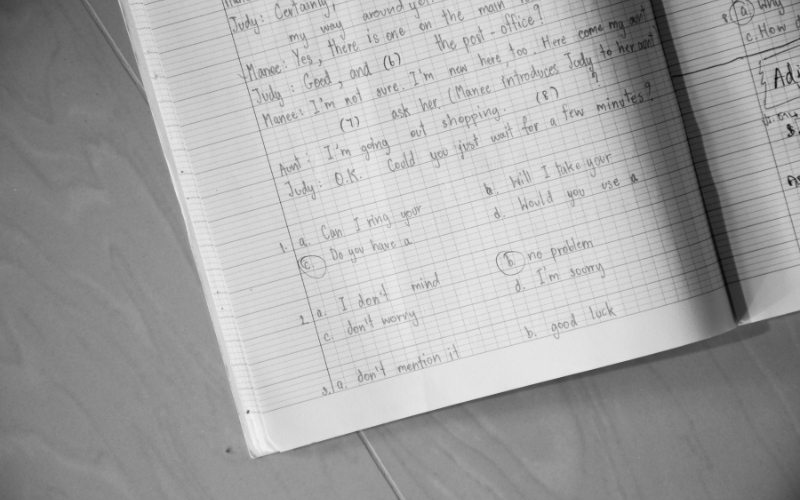 Judy: Certainly,
my way around
Manee: Yes, there is one on the main
Judy: Good, and (6) the post-office?
Manee: I'm not sure. I'm new here, too. Here come my aunt
(7) ask her. (Manee introduces Judy to her aunt
Aunt: I'm going out shopping. (8) ?
Judy: O.K. Could you just wait for a few minutes?
1. a. Can I ring your b. Will I take your
c. Do you have a d. Would you use a
2. a. I don't mind b. no problem
c. don't worry d. I'm soorry
3. a. don't mention it b. good luck
8. a. Why
c. How
Adj